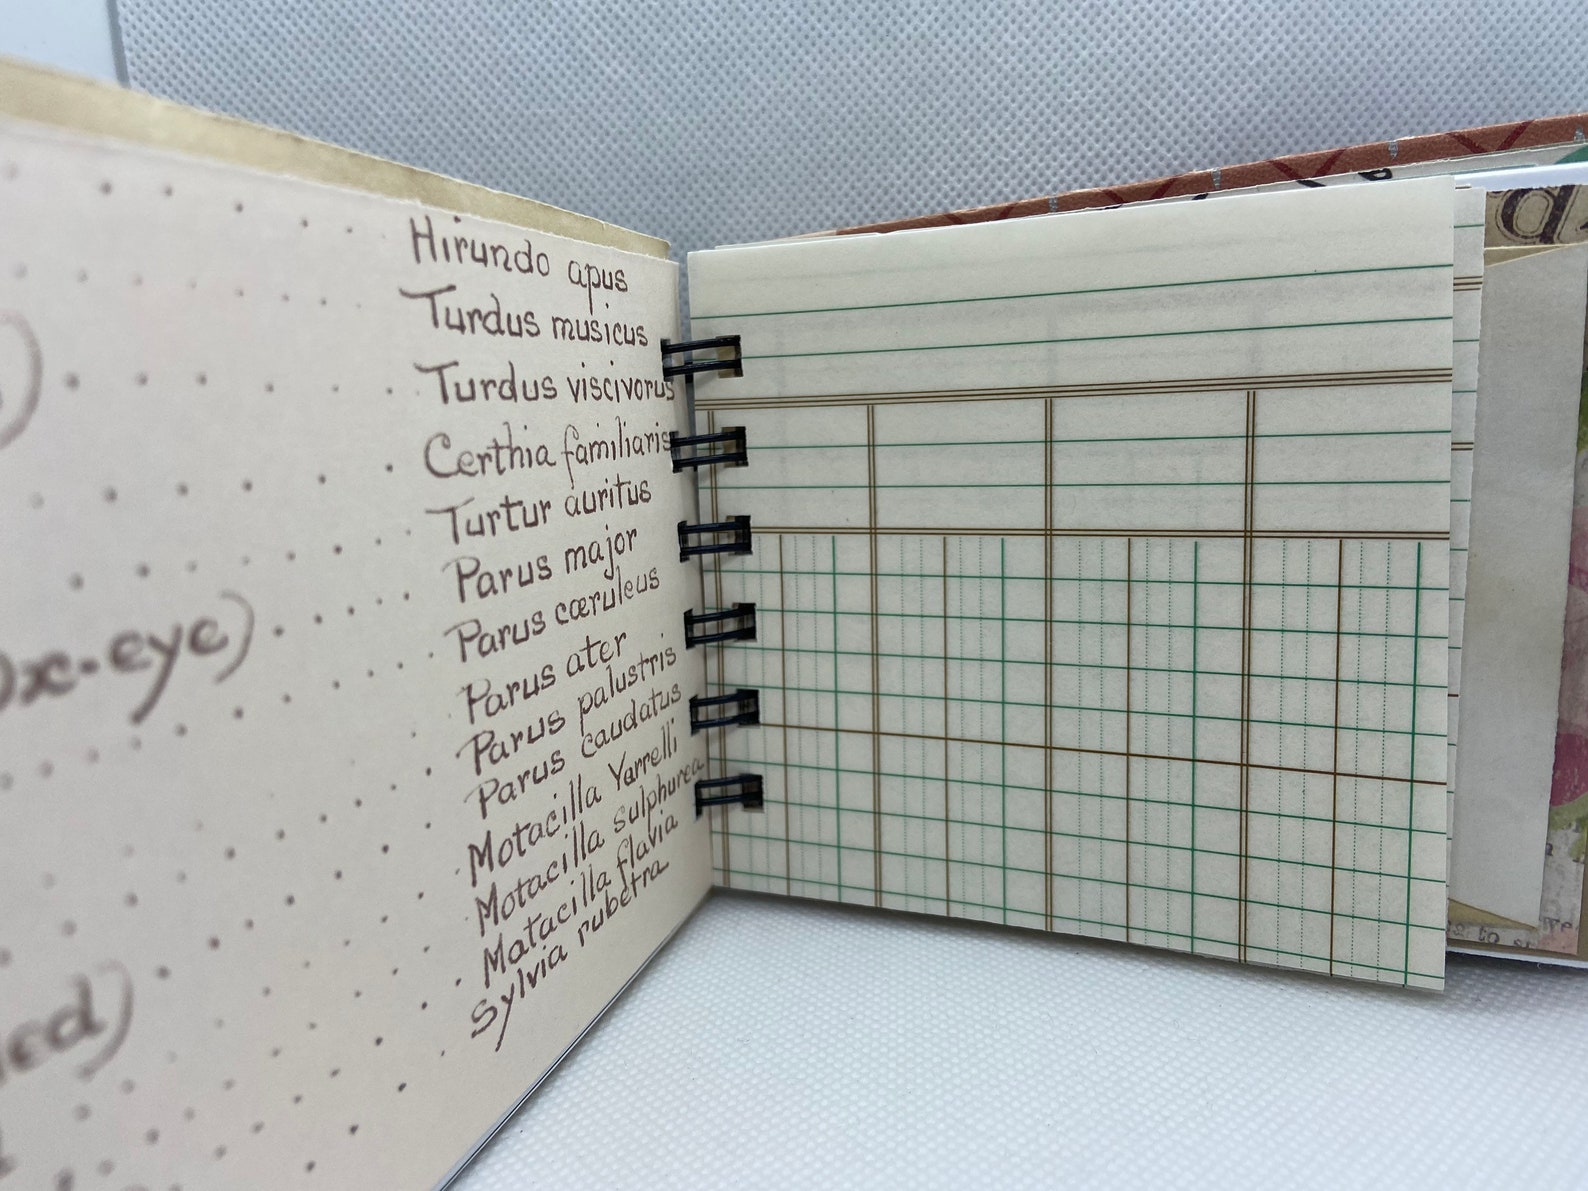 Hirundo apus
Turdus musicus
Turdus viscivorus
Certhia familiaris
Turtur auritus
Parus major
Ox-eye) Parus cœruleus
Parus ater
Parus palustris
Parus caudatus
Motacilla Yarrelli
Motacilla sulphurea
Matacilla flavia
Sylvia rubetra